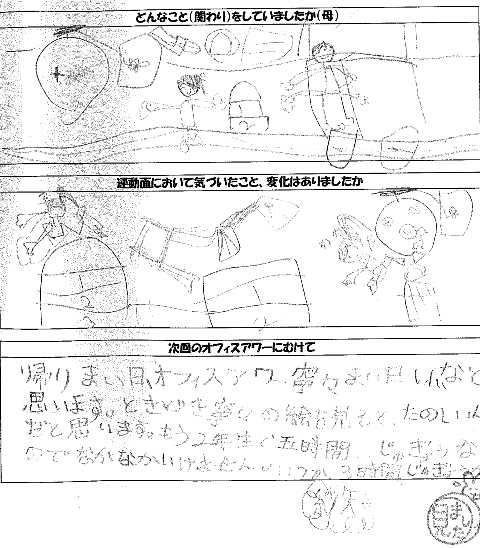 どんなこと(関わり)をしていましたか(母)
1
2
運動面において気づいたこと、変化はありましたか
1
2
3
1
次回のオフィスアワーにむけて
帰り まい日、オフィスアワー 寧々まい日 いいなと
思います。ときどき寧々の絵を見ると、たのしいん
だと思います。もう2年生で五時間 じゅぎょうな
のでなかなかいけません 時間じゅぎょう
見ました